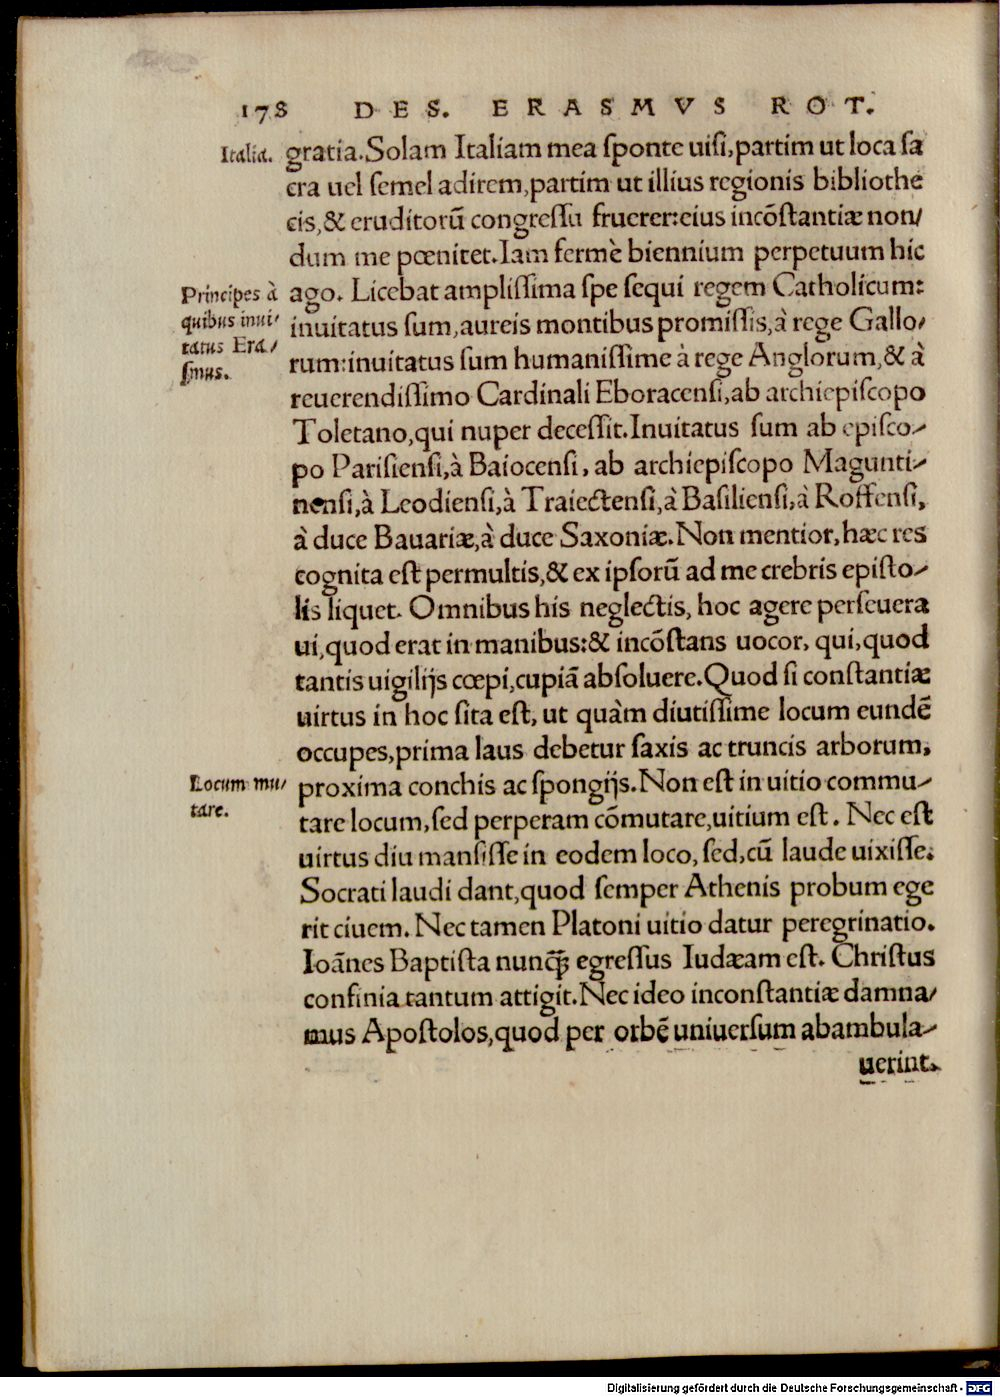 178 DES. ERASMVS ROT.
Italia.
gratia. Solam Italiam mea ſponte uiſi, partim ut loca ſa
cra uel ſemel adirem, partim ut illius regionis bibliothe
cis, & eruditorũ congreſſu fruerer: eius incõſtantiæ non/
dum me pœnitet. Iam fermè biennium perpetuum hic
Principes à
quibus inui/
tatus Era/
ſmus.
ago. Licebat ampliſſima ſpe ſequi regem Catholicum:
inuitatus ſum, aureis montibus promiſſis, à rege Gallo/
rum: inuitatus ſum humaniſſime à rege Anglorum, & à
reuerendiſſimo Cardinali Eboracenſi, ab archiepiſcopo
Toletano, qui nuper deceſſit. Inuitatus ſum ab epiſco/
po Pariſienſi, à Baiocenſi, ab archiepiſcopo Magunti/
nenſi, à Leodienſi, à Traiectenſi, à Baſilienſi, à Roffenſi,
à duce Bauariæ, à duce Saxoniæ. Non mentior, hæc res
cognita eſt permultis, & ex ipſorũ ad me crebris epiſto/
lis liquet. Omnibus his neglectis, hoc agere perſeuera
ui, quod erat in manibus: & incõſtans uocor, qui, quod
tantis uigilijs cœpi, cupiã abſoluere. Quod ſi conſtantiæ
uirtus in hoc ſita eſt, ut quàm diutiſſime locum eundẽ
occupes, prima laus debetur ſaxis ac truncis arborum,
Locum mu/
tare.
proxima conchis ac ſpongijs. Non eſt in uitio commu/
tare locum, ſed perperam cõmutare, uitium eſt. Nec eſt
uirtus diu manſiſſe in eodem loco, ſed, cũ laude uixiſſe.
Socrati laudi dant, quod ſemper Athenis probum ege
rit ciuem. Nec tamen Platoni uitio datur peregrinatio.
Ioãnes Baptiſta nunꝙ̃ egreſſus Iudæam eſt. Chriſtus
confinia tantum attigit. Nec ideo inconſtantiæ damna/
mus Apoſtolos, quod per orbẽ uniuerſum abambula/
uerint.
Digitalisierung gefördert durch die Deutsche Forschungsgemeinschaft - DFG